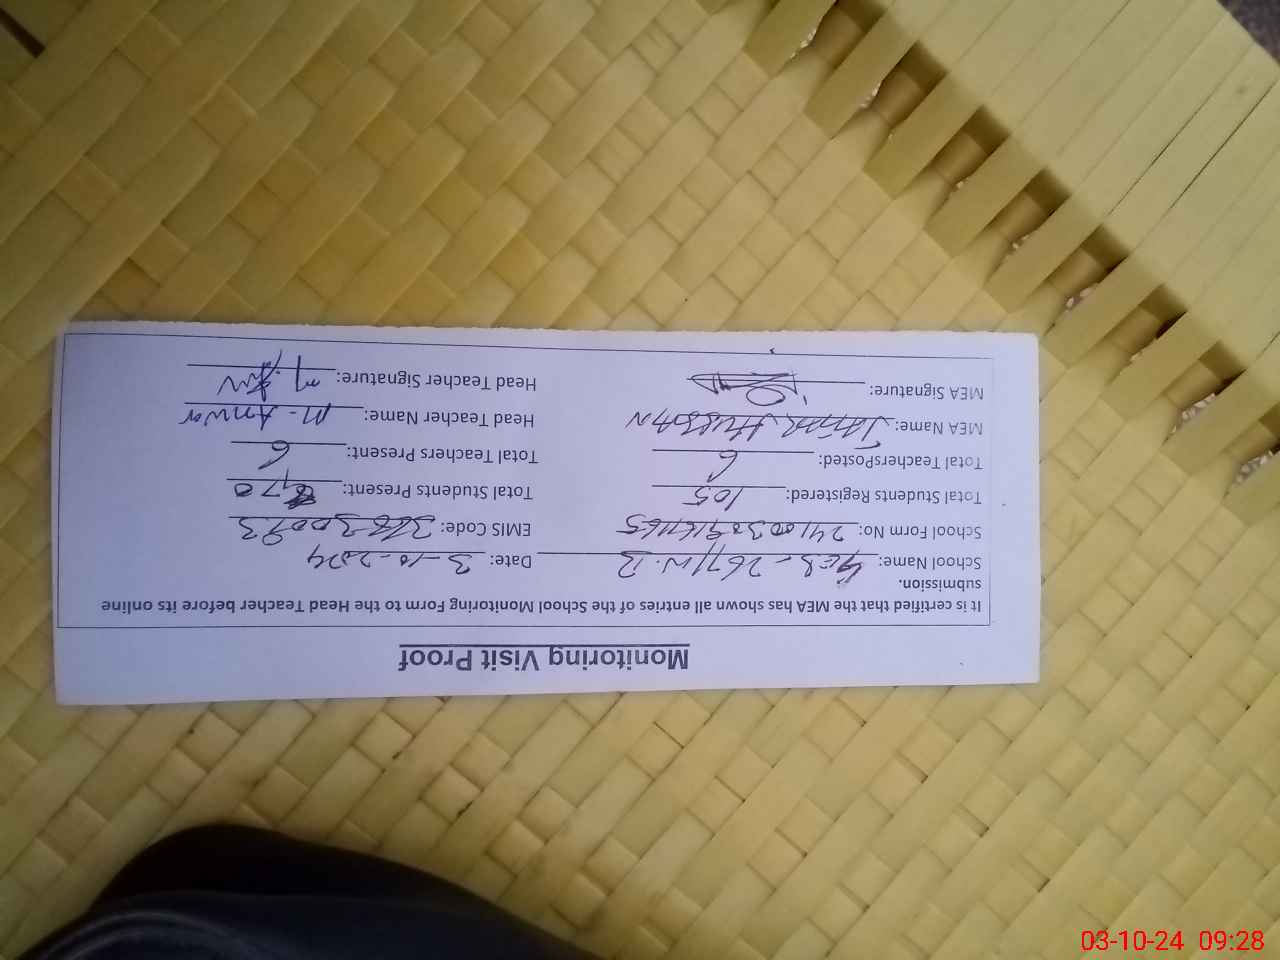 Monitoring Visit Proof
It is certified that the MEA has shown all entries of the School Monitoring Form to the Head Teacher before its online
submission.
School Name: 267/W.B Date: 3-10-2024
School Form No: EMIS Code:
Total Students Registered: 105 Total Students Present: 70
Total TeachersPosted: 6 Total Teachers Present: 6
MEA Name: JAFAR HUSSAIN Head Teacher Name: M. Anwar
MEA Signature: Head Teacher Signature:
03-10-24 09:28